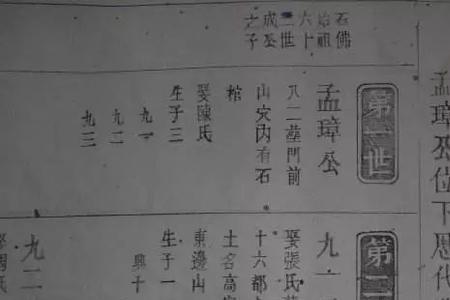 孟璋公位下
石佛
始祖
六十
二世
成公
之子
第一世
孟璋公
八二塟門前
山穴內有石
棺
娶陳氏
生子三
九一
九二
九三
第
九
娶張氏
十六都
土名高
東邊山
生子一
興十
九二